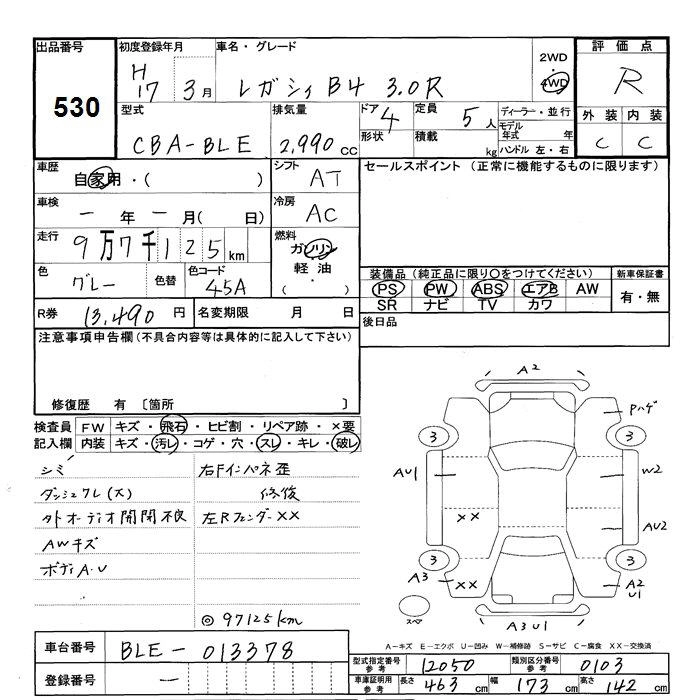 出品番号 530
初度登録年月 H17 3月
車名・グレード レガシィ B4 3.0R
2WD
4WD
評価点 R
外装 内装
C C
型式 CBA-BLE
排気量 2,990 CC
ドア 4
形状
定員 5人
積載 kg
ディーラー・並行
モデル年式 年
ハンドル 左・右
車歴 自家用・( )
シフト AT
セールスポイント (正常に機能するものに限ります)
車検 — 年 — 月( 日)
冷房 AC
走行 9万7千125km
燃料 ガソリン
軽油
( )
色 グレー 色替 色コード 45A
装備品 (純正品に限り○をつけてください) 新車保証書
PS PW ABS エアB AW 有・無
SR ナビ TV カワ
R券 13,490円 名変期限 月 日
後日品
注意事項申告欄 (不具合内容等は具体的に記入して下さい)
修復歴 有 〔箇所 〕
検査員記入欄
FW キズ・飛石・ヒビ割・リペア跡・×要
内装 キズ・汚レ・コゲ・穴・スレ・キレ・破レ
シミ 右Fインパネ歪
ダッシュワレ(大) 修復
外オーディオ開閉不良 左Rフェンダー××
AWキズ
ボディA.U
◎97125km
A2
Pハゲ
3 3
AU1 W2
×× AU2
3 3
A3 ×× A2
U1
スペ
A3U1
A-キズ E-エクボ U-凹み W-補修跡 S-サビ C-腐食 XX-交換済
車台番号 BLE-013378
型式指定番号参考 12050 類別区分番号参考 0103
登録番号 —
車庫証明用参考 長さ 463cm 幅 173cm 高さ 142cm